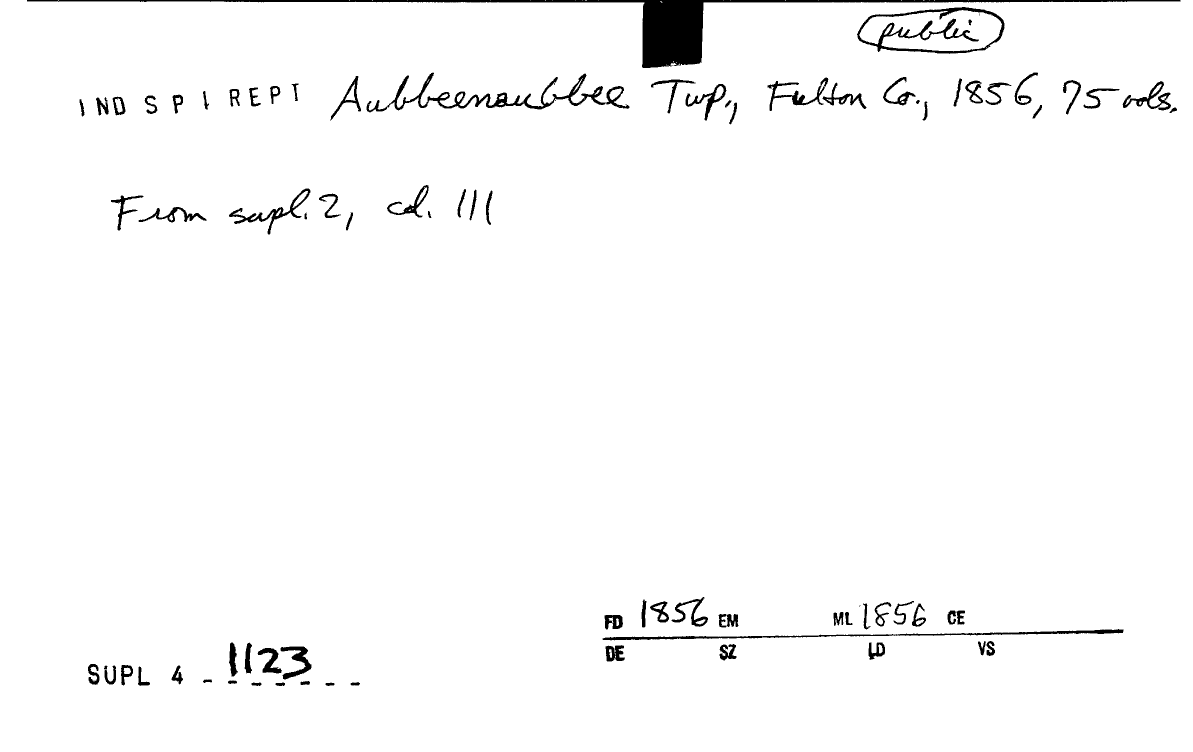 public
IND S P I REPT Aubbeenaubbee Twp., Fulton Co., 1856, 75 vols.
From supl. 2, cd. 111
FD 1856 EM ML 1856 CE
DE SZ LD VS
SUPL 4 - 1123